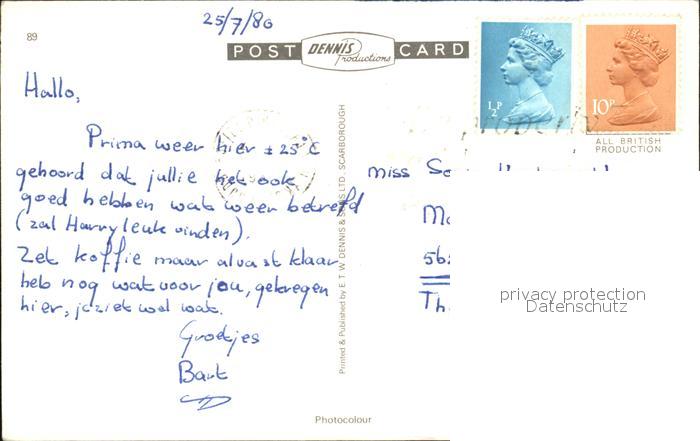 25/7/80
89
POST DENNIS Productions CARD
½P
10P
ALL BRITISH
PRODUCTION
Hallo,
Prima weer hier ± 25°C
gehoord dat jullie het ook
goed hebben wat weer betrefd
(zal Harry leuk vinden).
Zet koffie maar alvast klaar
heb nog wat voor jou, gekregen
hier, je ziet wel wat.
Groetjes
Bart
Printed & Published by E.T.W. DENNIS & SONS LTD., SCARBOROUGH
miss
privacy protection
Datenschutz
Photocolour